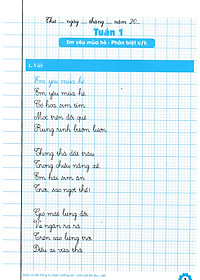 Thứ ... ngày ... tháng ... năm 20...
Tuần 1
Em yêu mùa hè - Phân biệt c/k
1. Viết
Em yêu mùa hè
Em yêu mùa hè
Có hoa sim tím
Mọc trên đồi quê
Rung rinh bướm lượn
Thong thả dắt trâu
Trong chiều nắng xế
Em hái sim ăn
Trời, sao ngọt thế!
Gió mát lưng đồi
Ve ngân ra rả
Trên cao lưng trời
Diều ai vừa thả.